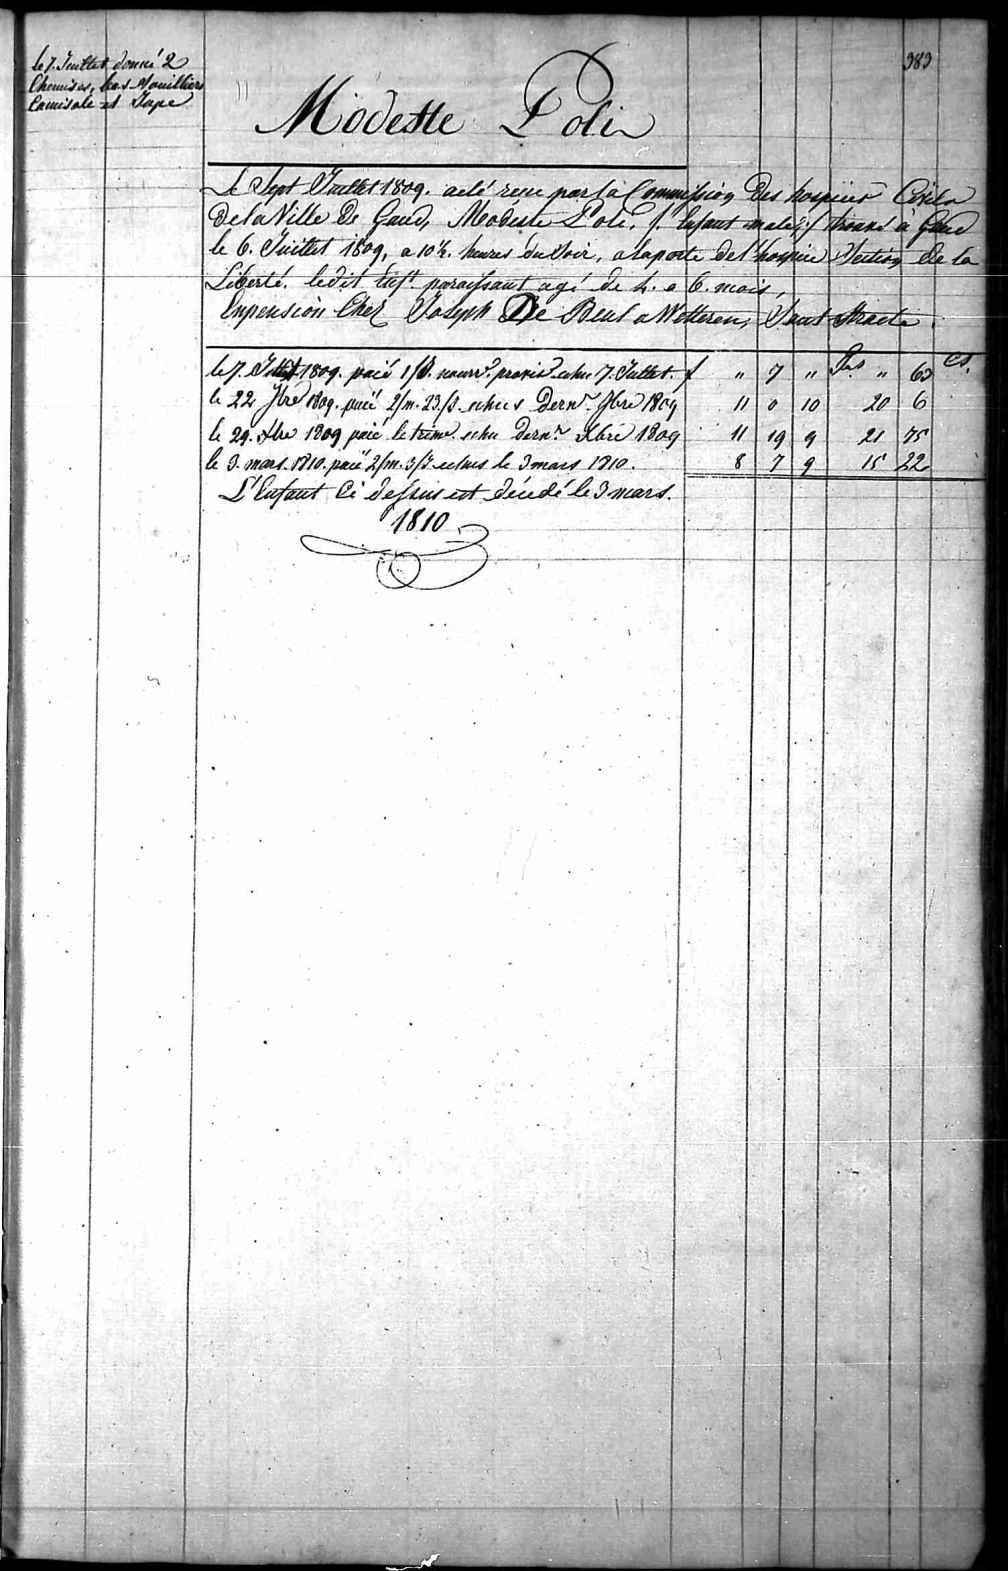 383
le 7. Juillet donné 2
Chemises, bas Mouilliers
Camisole et Jupe
Modeste Poli
Le Sept Juillet 1809. a été reçu par la Commission des hospices Civils
de la Ville de Gand, Modeste Poli. /. Enfant male ./ trouvé à Gand
le 6. Juillet 1809, a 10½ heures du Soir, a la porte de l'hospice Section de la
Liberté. ledit Enft. paraissant agé de 4. a 6. mois,
En pension Chez Joseph De Beul a Wetteren,
le 7. Juillet 1809. paié 1/S. nourre. provis. echu 7. Juillet. f " 7 " frs " 63 cs.
le 22 7bre 1809. paié 2/m. 23./J. echus dernr. 7bre 1809 11 0 10 20 6
le 29. Xbre 1809 paié le trime. echu dernr. Xbre 1809 11 19 9 21 75
le 3. mars. 1810. paié 2/m. 3/J. echus le 3 mars 1810. 8 7 9 15 22
L'Enfant Ci dessus est décédé le 3 mars.
1810